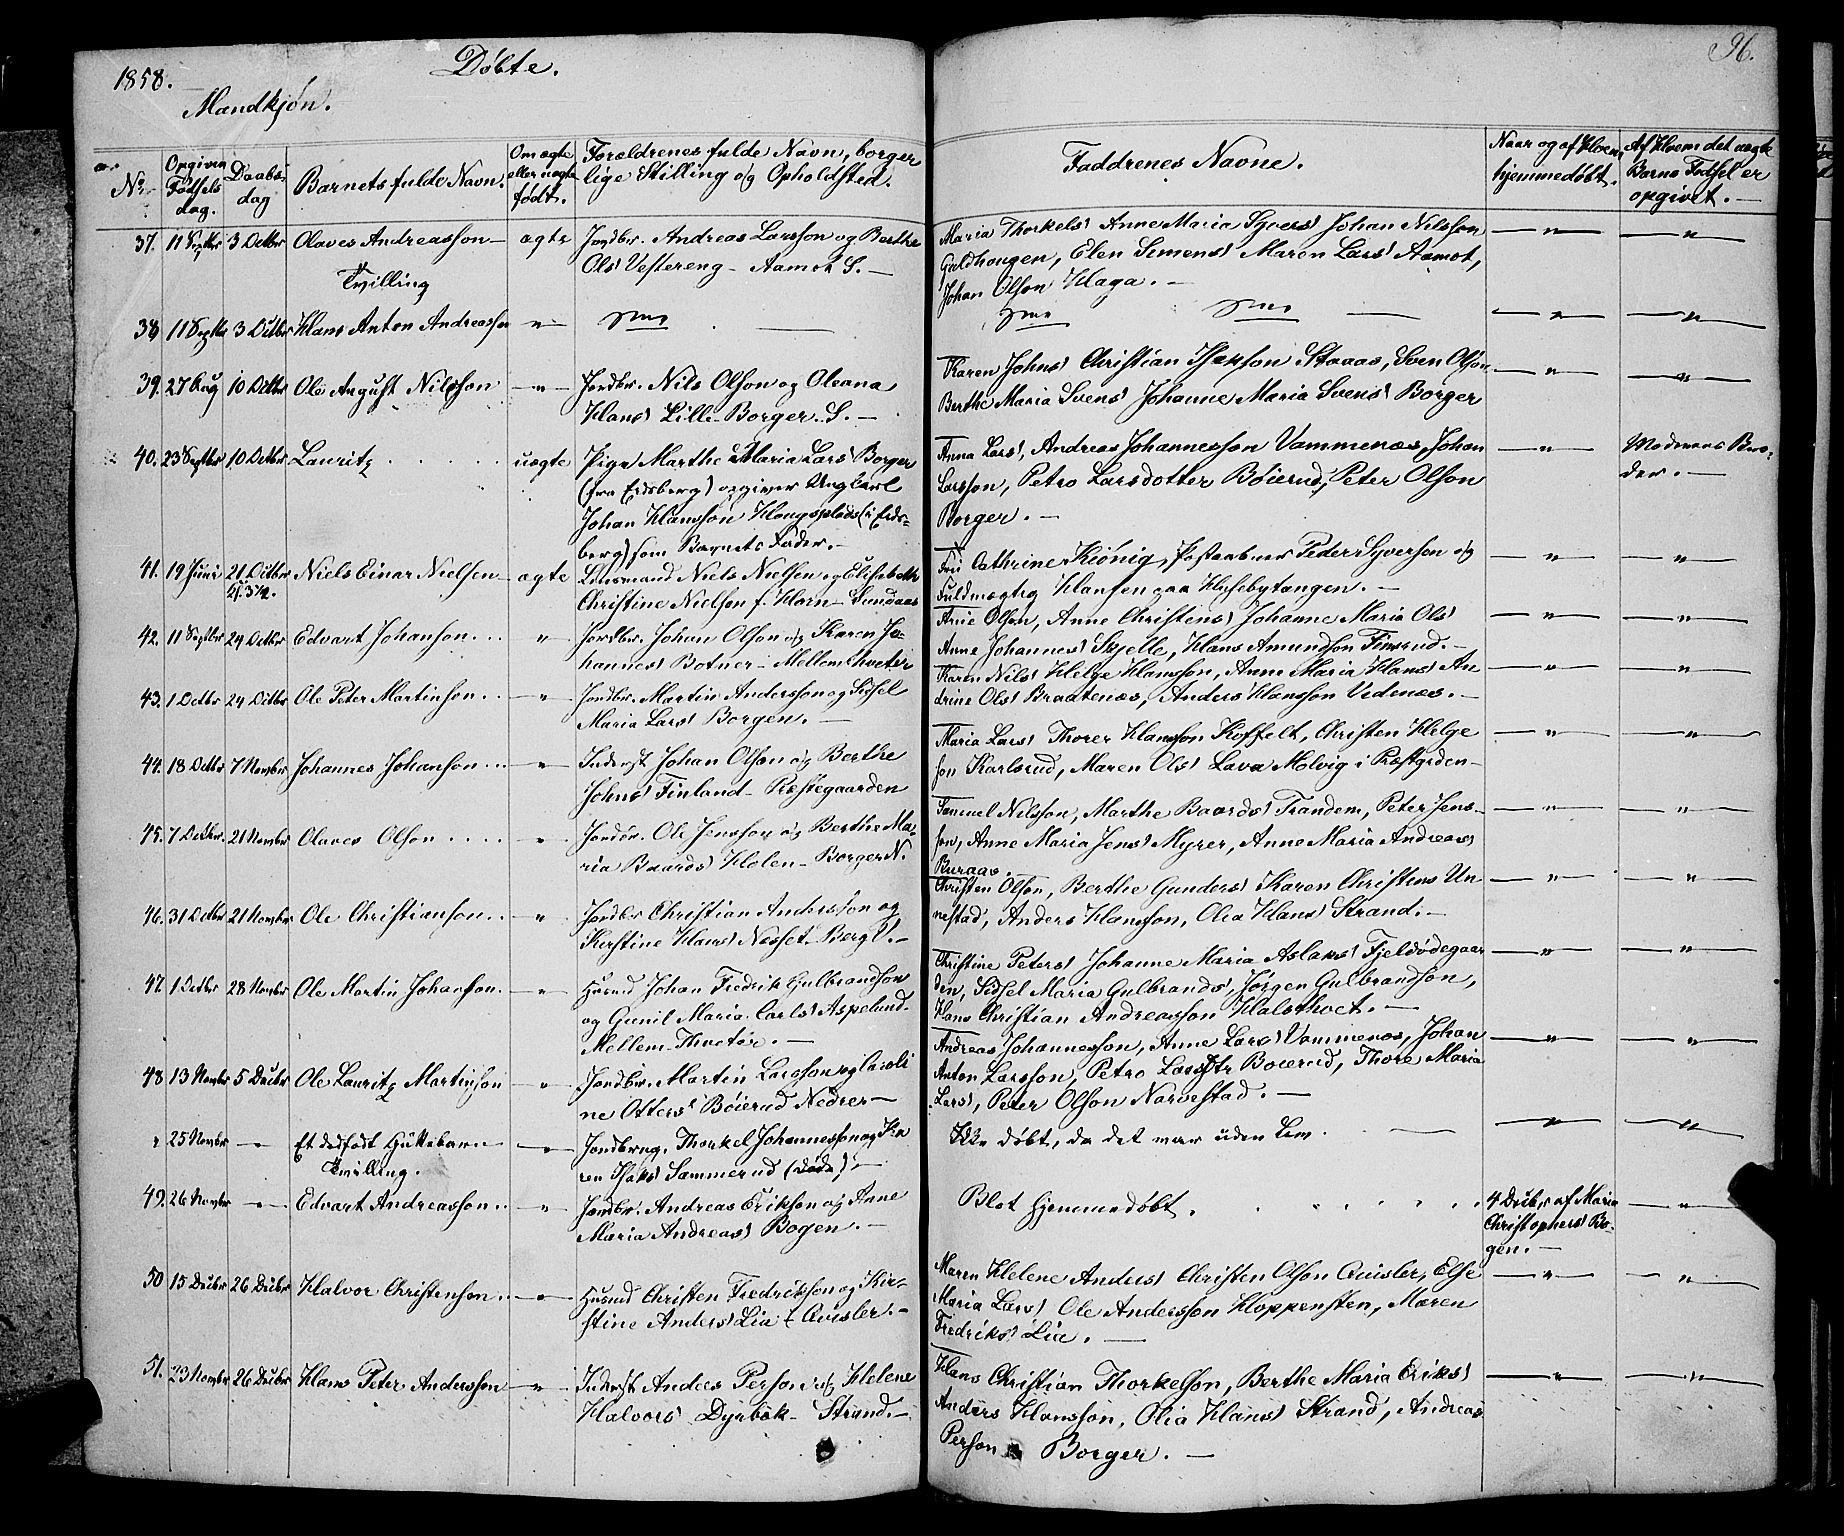 1858.
Døbte.
Mandkjøn.
96.
No
Opgiven Fødsels dag.
Daabs dag
Barnets fulde Navn.
Om ægte eller uægte født.
Forældrenes fulde Navn, borger
lige Stilling og Opholdsted.
Faddrenes Navne.
Naar og af Hvem
hjemmedøbt.
Af Hvem det uægte
Barns Fødsel er
opgivet. —
37. 11 Septbr 3 Octbr Olaves Andreasson — ægte Jordbr. Andreas Larsson og Berthe
Tvilling
Ols Vestereng — Aamot S. —
Maria Thorkels Anne Maria Syvers Johan Nilsson
Guldhaugen, Elen Simens Maren Lars Aamot,
Johan Olson Haga. —
38. 11 Septbr 3 Octbr Hans Anton Andreasson — " —
39. 27 Aug 10 Octbr Ole August Nilsson — " — Jordbr. Nils Olson og Oleana
Hans Lille Borger S. —
Karen Johns Christian Staaas, Sven Olson
Berthe Maria Svens Johanne Maria Svens Borger
40. 23 Septbr 10 Octbr Lauritz uægte Pige Marthe Maria Lars Borger
(fra Eidsberg) opgiver Ungkarl
Johan Hansson Haugsplads (i Eids-
berg) som Barnets Fader. —
Anna Lars, Andreas Johannesson Vammenæs, Johan
Larsson, Petro Larsdotter Bøierud, Peter Olson
Borger. —
Moderens Bro-
der. —
41. 19 Juni 21 Octbr Niels Einar Nielsen — ægte Lensmand Niels Nielsen og Elisabeth
Christine Nielsen f. Horn — Sundaas
Fru Cathrine Kiønig, Postaabner Peder Syverson og
Fuldmægtig Hansen paa Husebytangen. —
42. 11 Septbr 24 Octbr Edvart Johanson " Jordbr. Johan Olson og Karen Jo-
hannes Botner — Mellem
Arne Olson, Anne Christens Johanne Maria Ols
Anne Johannes Skjelle, Hans Amundson Timrud. —
43. 1 Octbr 24 Octbr Ole Peter Martinson — " — Jordbr. Martin Andersson og Sidsel
Maria Lars Borgen. —
Karen Nils Helge Hansson, Anne Maria Hans An
drine Ols Braatenæs, Anders Hansson Vedenæs. —
44. 18 Octbr 7 Novbr Johannes Johanson — " — Inderst Johan Olson og Berthe
Johns Finland — Præstegaarden
Maria Lars Thorer Hansson Koffelt, Christen Helge
son Karlsrud, Maren Ols Lava Molvig i Præstgrden —
45. 7 Octbr. 21 Novbr Olaves Olson — " — Jordbr. Ole Jensson og Berthe Ma-
ria Baards Holen — Borger N.
Samuel Nilsson, Marthe Baards Trandem, Peter Jens-
son, Anne Maria Jens Myrer, Anne Maria Andreas
Buraas.
46. 31 Octbr 21 Novbr Ole Christianson — " — Jordbr Christian Andersson og
Kirstine Hans Næsset Bergl. —
Christen Olson, Berthe Gunders Karen Christens Un
nestad, Anders Hansson, Olea Hans Strand. —
47. 1 Octbr 28 Novbr Ole Martin Johanson — " — Husmd Johan Fredrik Gulbrandson
og Gunil Maria Carls Aspelund
Mellem
Christine Peters Johanne Maria Aslaks Fjeldødegaar
den, Sidsel Maria Gulbrands, Jørgen Gulbrandson,
Hans Christian Andreasson Halsthvet. —
48 13 Novbr 5 Decbr Ole Lauritz Martinson — " — Jordbr. Martin Larsson og Caroli
ne Otters Bøierud Nedre —
Andreas Johannesson, Anne Lars Vammenæs, Johan
Anton Larsson, Petro Larsdtr Bøierud, Thore Maria
Lars, Peter Olson Narvestad. —
" 25 Novbr — Et dødfødt Guttebarn — Jordbrug. Thorkel Johannesson og Ka
Tvilling.
ren Isaks Sammerud (døde). —
Ikke døbt, da det var uden Liv. —
49. 26 Novbr — " — Edvart Andreasson — " — Jordbr. Andreas Erikson og Anne
Maria Andreas Bogen. —
Blot hjemmedøbt.
4 Decbr af Maria
Christophers Bo-
gen. —
50 15 Decbr 26 Decbr Halvor Christenson — " — Husmd Christen Fredrikson og Kir-
stine Anders Lia — Qvisler. —
Maren Helene Anders Christen Olson Qvisler, Else
Maria Lars Ole Andersson Kloppensten, Maren
Fredriks Lia. —
51. 23 Novbr 26 Decbr Hans Peter Andersson — " — Inderst Anders Person og Helene
Halvors Dyrbæk — Strand. —
Hans Christian Thorkelson, Berthe Maria Eriks
Anders Hansson, Olia Hans Strand, Andreas
Person Borger. —